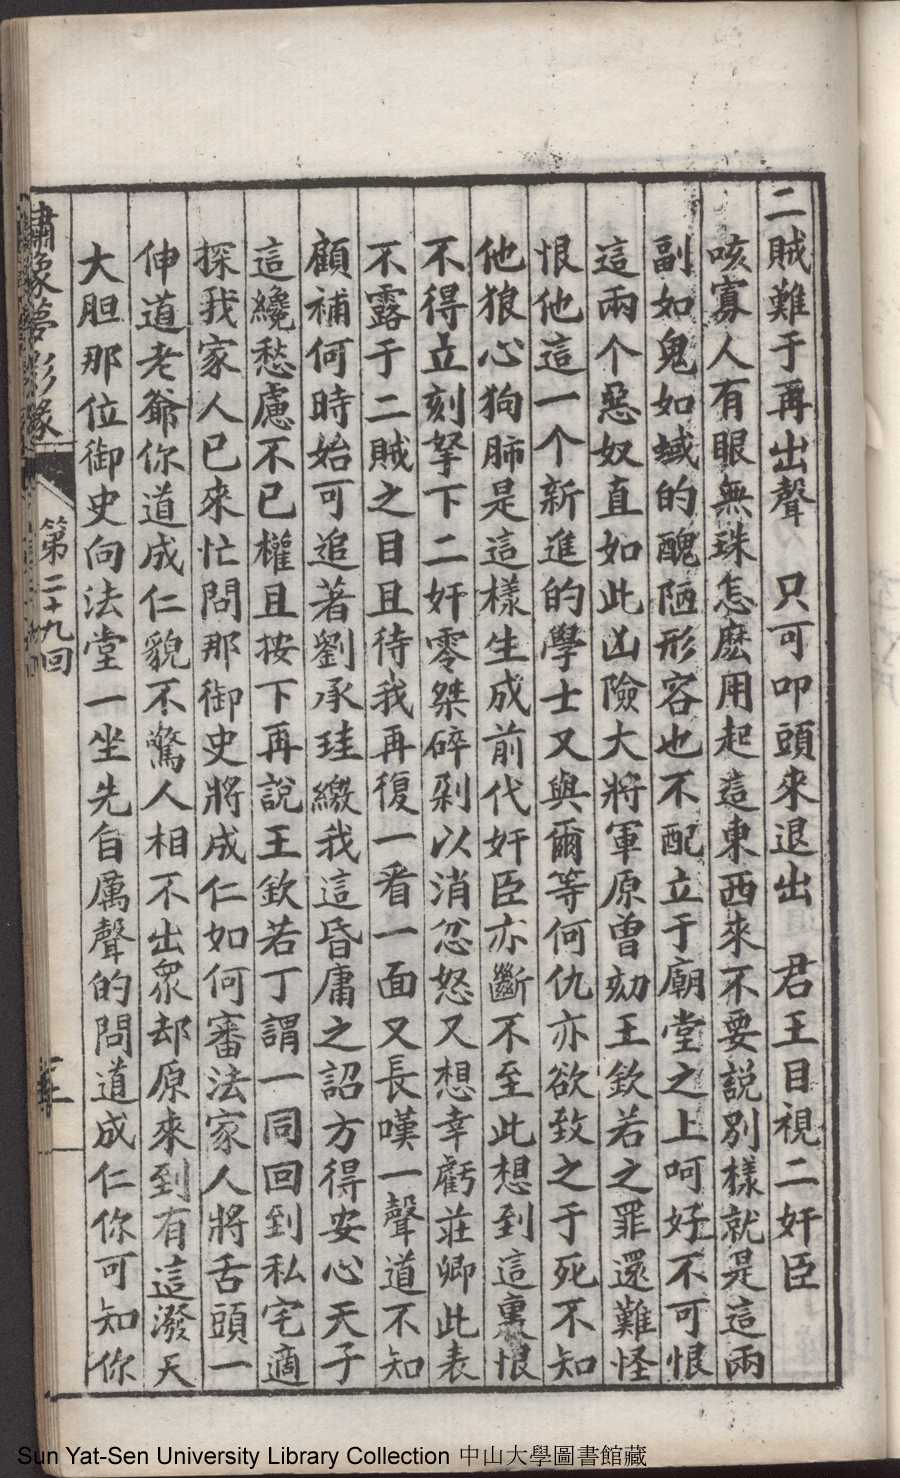 二賊難于再出聲　只可叩頭來退出　君王目視二奸臣
咳寡人有眼無珠怎麽用起這東西來不要説别樣就是這兩
副如鬼如蜮的醜陋形容也不配立于廟堂之上呵好不可恨
這兩个惡奴直如此凶險大將軍原曾劾王欽若之罪還難怪
恨他這一个新進的學士又與爾等何仇亦欲致之于死不知
他狼心狗肺是這樣生成前代奸臣亦斷不至此想到這裏恨
不得立刻拏下二奸零桀碎剁以消忿怒又想幸虧莊卿此表
不露于二賊之目且待我再復一看一面又長嘆一聲道不知
顧補何時始可追著劉承珪繳我這昏庸之詔方得安心天子
這纔愁慮不已權且按下再説王欽若丁謂一同回到私宅適
探我家人已來忙問那御史將成仁如何審法家人將舌頭一
伸道老爺你道成仁貌不驚人相不出衆却原來到有這潑天
大胆那位御史向法堂一坐先自厲聲的問道成仁你可知你
繡像夢影緣
第二十九回
Sun Yat-Sen University Library Collection 中山大學圖書館藏